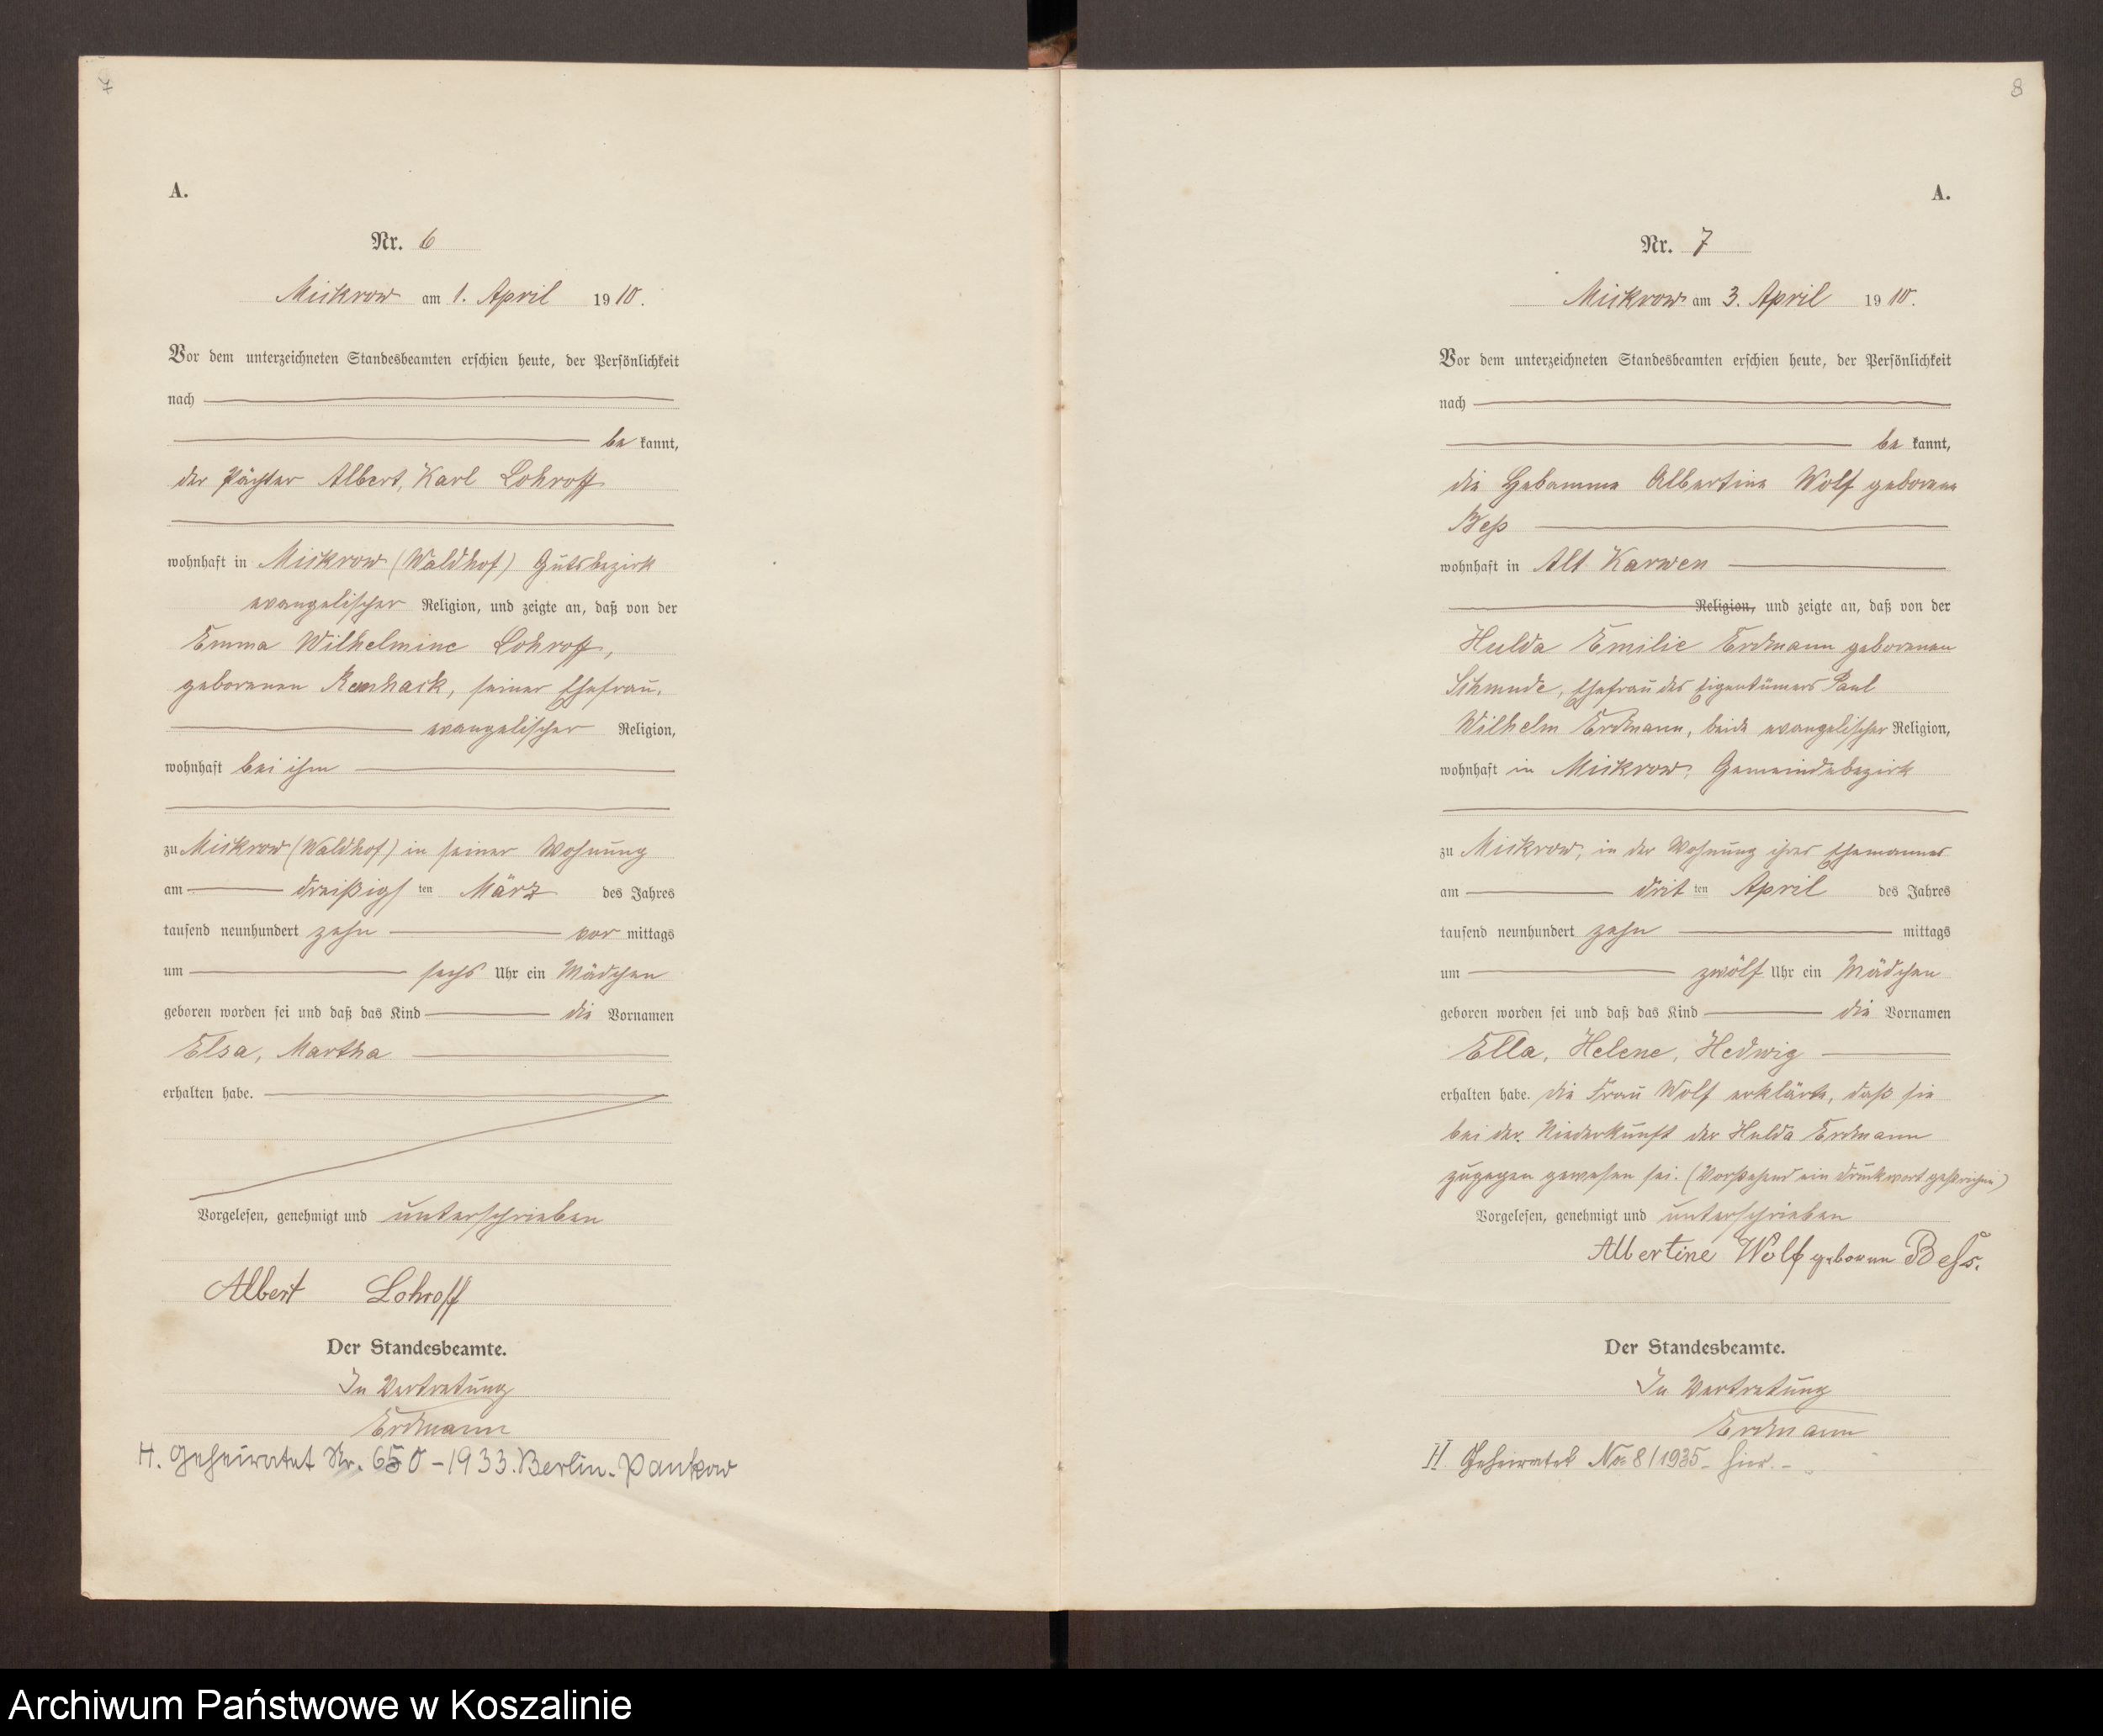 7
A.
Nr. 6
Mickrow am 1. April 1910.
Vor dem unterzeichneten Standesbeamten erschien heute, der Persönlichkeit
nach
be kannt,
der Pächter Albert, Karl Lohroff
wohnhaft in Mickrow (Waldhof) Gutsbezirk
evangelischer Religion, und zeigte an, daß von der
Emma Wilhelmine Lohroff,
geborenen, seiner Ehefrau,
evangelischer Religion,
wohnhaft bei ihm
zu Mickrow (Waldhof) in seiner Wohnung
am dreißigs ten März des Jahres
tausend neunhundert zehn vor mittags
um sechs Uhr ein Mädchen
geboren worden sei und daß das Kind die Vornamen
Elsa, Martha
erhalten habe.
Vorgelesen, genehmigt und unterschrieben
Albert Lohroff
Der Standesbeamte.
In Vertretung
Erdmann
H. Geheiratet Nr. 650-1933. Berlin-Pankow
8
A.
Nr. 7
Mickrow am 3. April 1910.
Vor dem unterzeichneten Standesbeamten erschien heute, der Persönlichkeit
nach
be kannt,
die Hebamme Albertine Wolf geborene
Beß
wohnhaft in Alt Karwen
Religion, und zeigte an, daß von der
Hulda Emilie Erdmann geborenen
Schmude, Ehefrau des Eigentümers Paul
Wilhelm Erdmann, beide evangelischer Religion,
wohnhaft in Mickrow, Gemeindebezirk
zu Mickrow, in der Wohnung ihres Ehemannes
am drit ten April des Jahres
tausend neunhundert zehn mittags
um zwölf Uhr ein Mädchen
geboren worden sei und daß das Kind die Vornamen
Ella, Helene, Hedwig
erhalten habe. Die Frau Wolf erklärte, daß sie
bei der Niederkunft der Hulda Erdmann
zugegen gewesen sei. (Vorstehend ein Druckwort gestrichen)
Vorgelesen, genehmigt und unterschrieben
Albertine Wolf geborene Beß.
Der Standesbeamte.
In Vertretung
Erdmann
H. Geheiratet No 8/1935 - hier. -
Archiwum Państwowe w Koszalinie